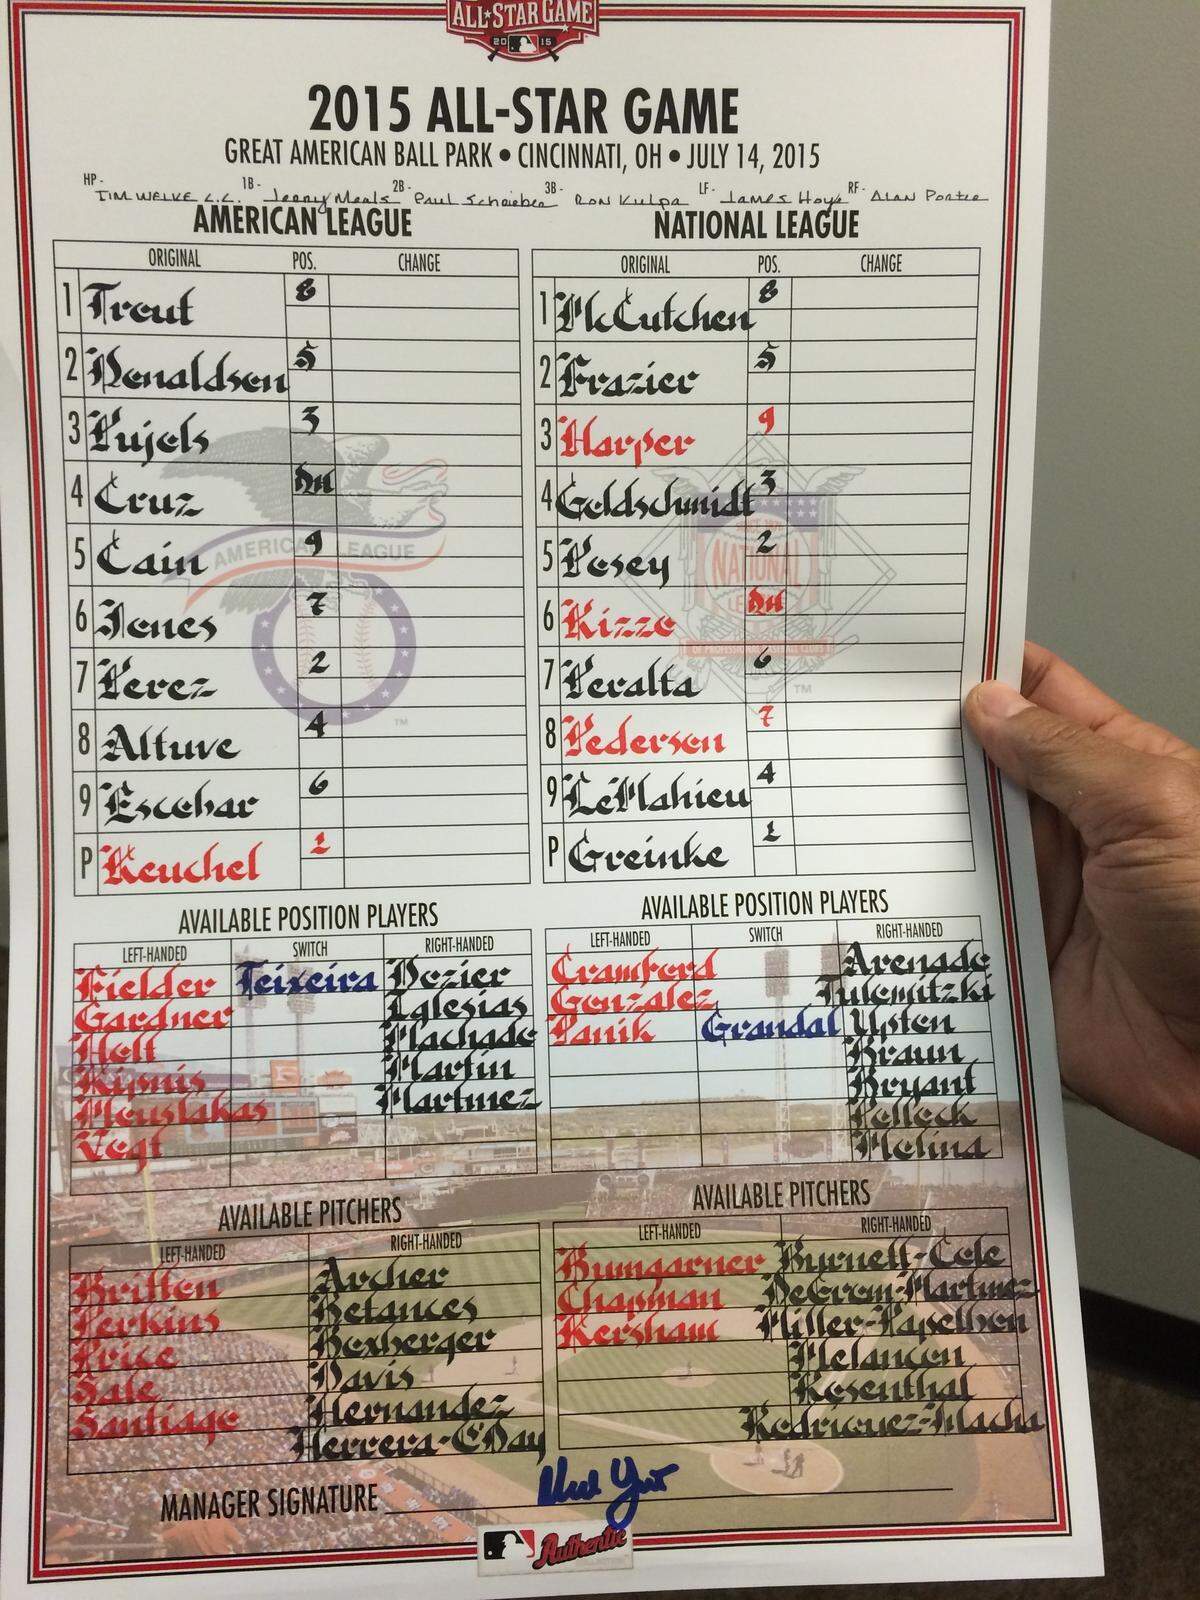 ALL★STAR GAME
2015
2015 ALL-STAR GAME
GREAT AMERICAN BALL PARK • CINCINNATI, OH • JULY 14, 2015
HP- TIM WELKE C.C. 1B- Jerry Meals 2B- Paul Schrieber 3B- Ron Kulpa LF- James Hoye RF- Alan Porter
AMERICAN LEAGUE
ORIGINAL POS. CHANGE
1 Trout 8
2 Donaldson 5
3 Pujols 3
4 Cruz DH
5 Cain 9
6 Jones 7
7 Perez 2
8 Altuve 4
9 Escobar 6
P Keuchel 1
AMERICAN LEAGUE
TM
NATIONAL LEAGUE
ORIGINAL POS. CHANGE
1 McCutchen 8
2 Frazier 5
3 Harper 9
4 Goldschmidt 3
5 Posey 2
6 Rizzo DH
7 Peralta 6
8 Pederson 7
9 LeMahieu 4
P Greinke 1
SINCE 1876
NATIONAL
LEAGUE
OF PROFESSIONAL BASEBALL CLUBS
TM
AVAILABLE POSITION PLAYERS
LEFT-HANDED SWITCH RIGHT-HANDED
Fielder Teixeira Dozier
Gardner Iglesias
Holt Machado
Kipnis Martin
Moustakas Martinez
Vogt
AVAILABLE POSITION PLAYERS
LEFT-HANDED SWITCH RIGHT-HANDED
Crawford Arenado
Gonzalez Tulowitzki
Panik Grandal Upton
Braun
Bryant
Pollock
Molina
AVAILABLE PITCHERS
LEFT-HANDED RIGHT-HANDED
Britton Archer
Perkins Betances
Price Boxberger
Sale Davis
Santiago Hernandez
Herrera-O'Day
AVAILABLE PITCHERS
LEFT-HANDED RIGHT-HANDED
Bumgarner Burnett-Cole
Chapman DeGrom-Martinez
Kershaw Miller-Papelbon
Melancon
Rosenthal
Rodriguez-Wacha
MANAGER SIGNATURE
Authentic